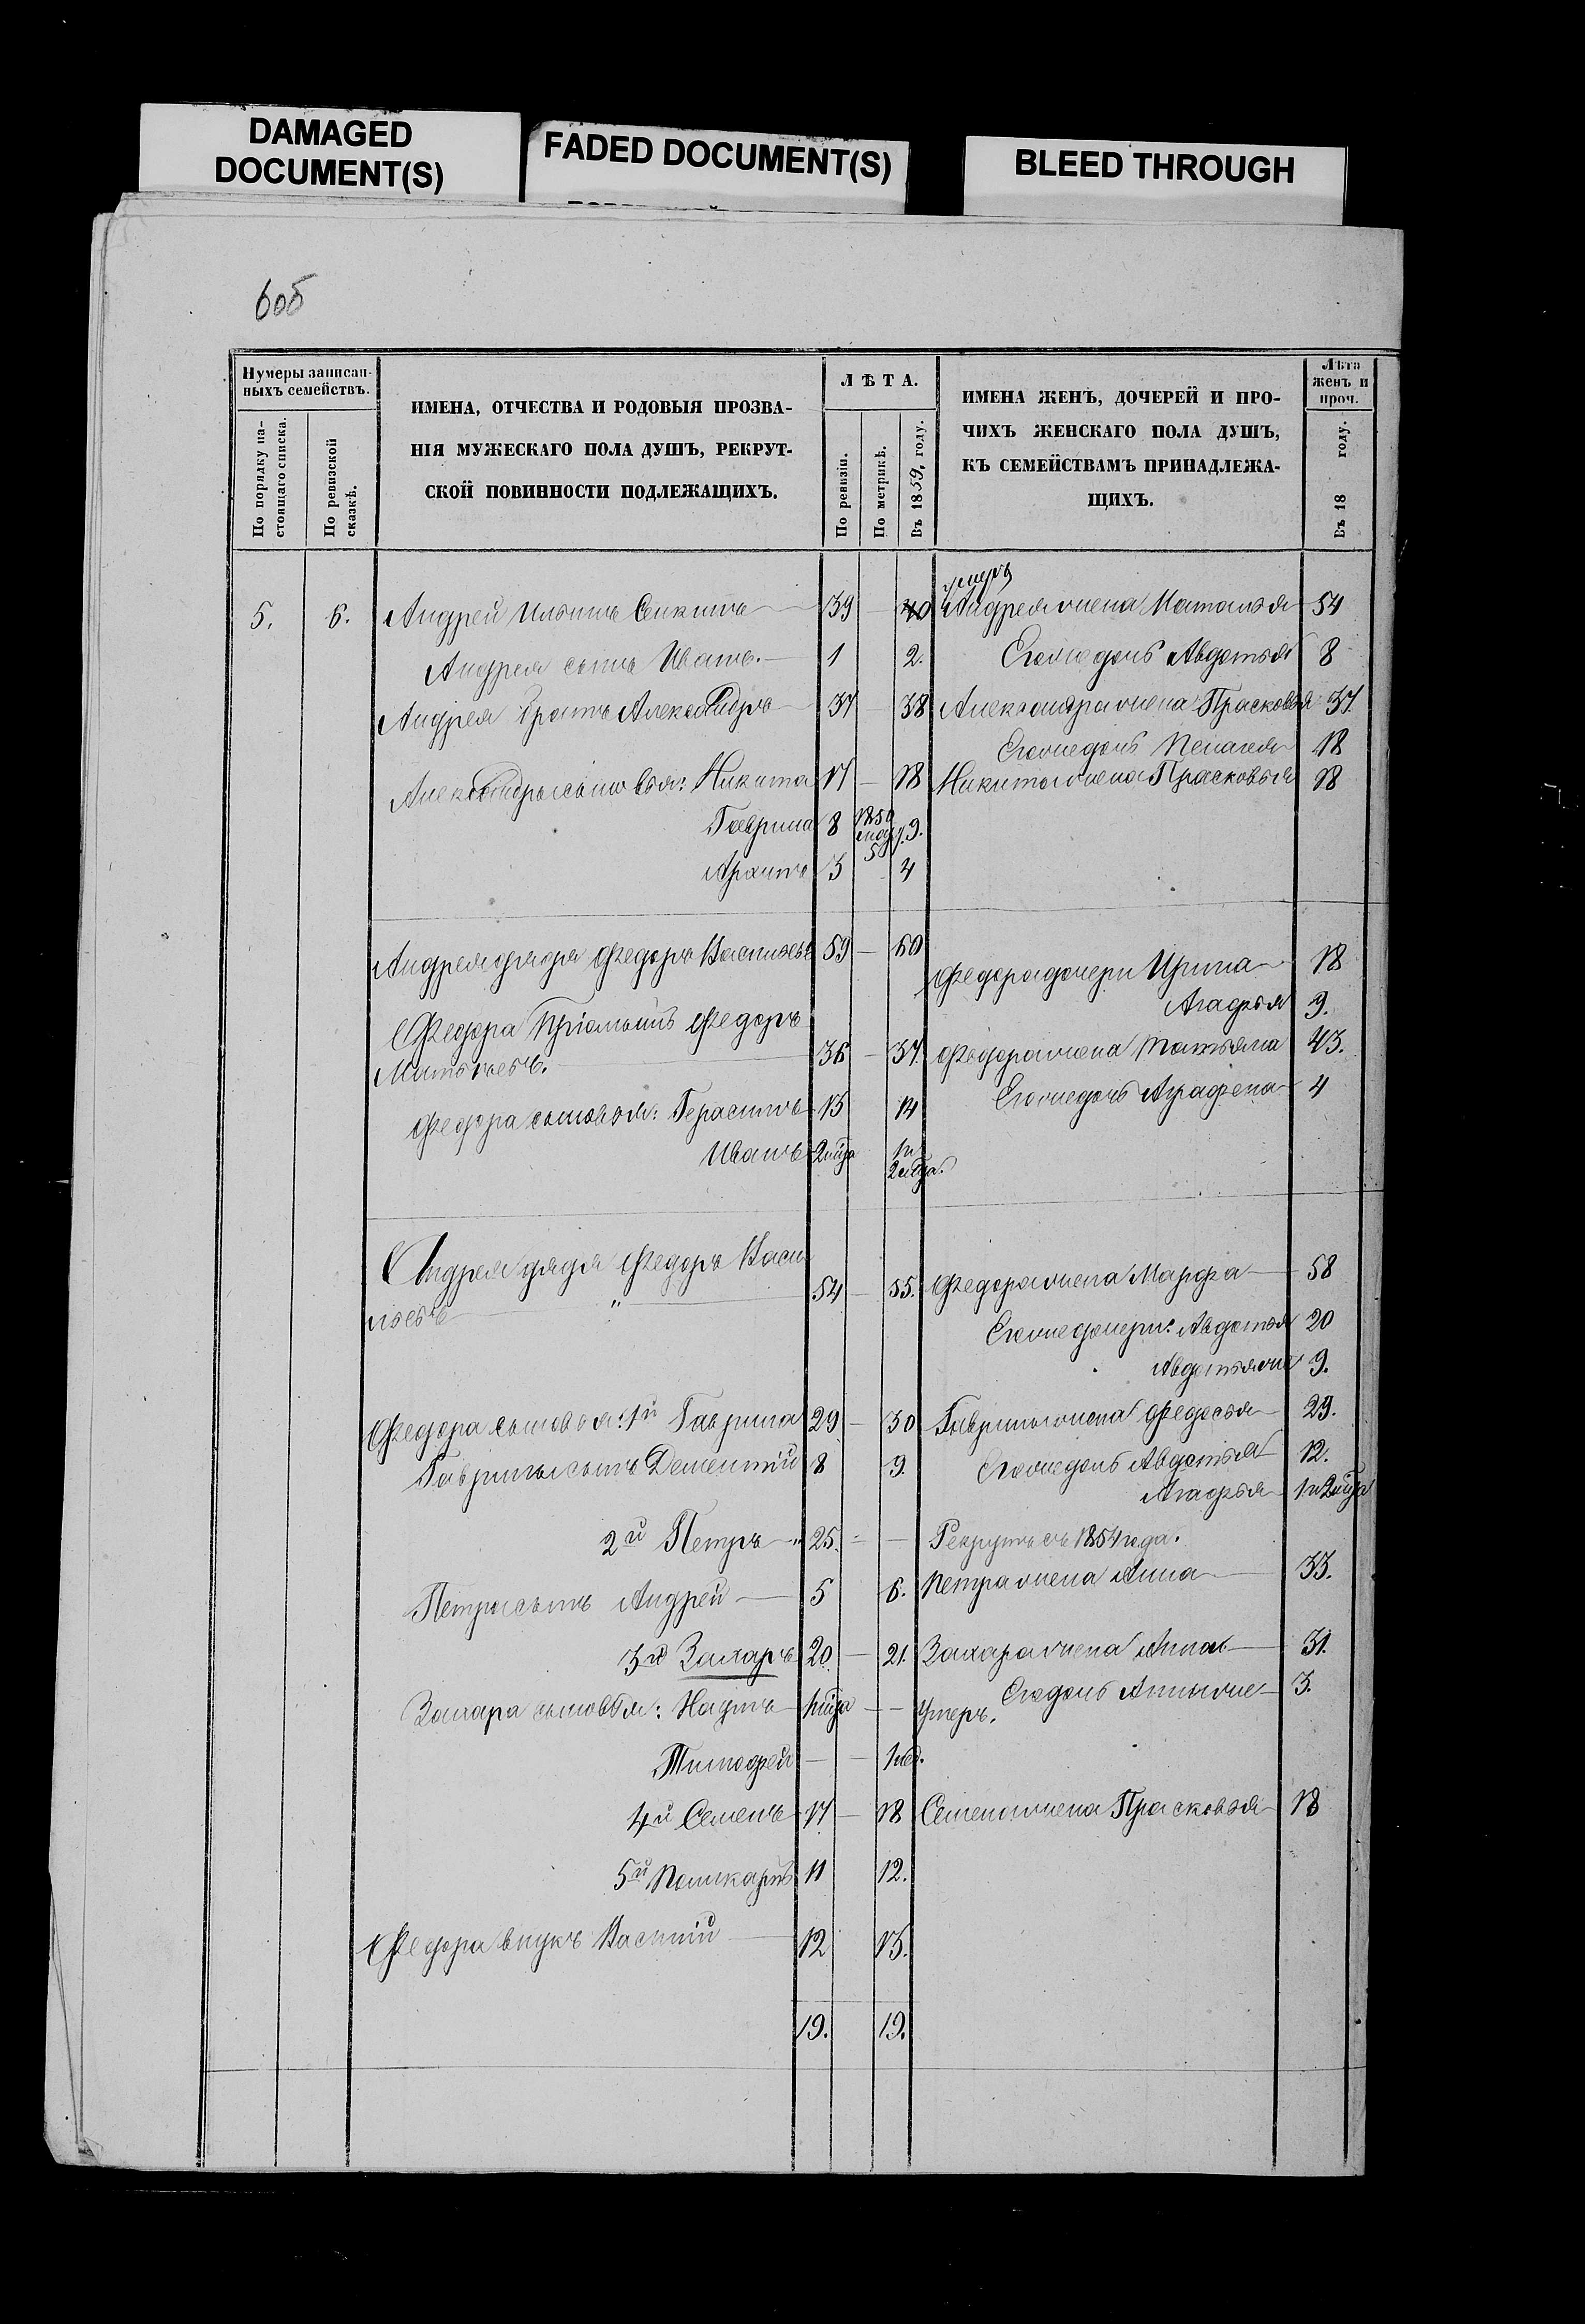 DAMAGED
DOCUMENT(S)
FADED DOCUMENT(S)
BLEED THROUGH
605
Нумеры записан-
ныхъ семействъ.
По порядку на-
стоящаго списка.
По ревизской
сказкѣ.
ИМЕНА, ОТЧЕСТВА И РОДОВЫЯ ПРОЗВА-
НІЯ МУЖЕСКАГО ПОЛА ДУШЪ, РЕКРУТ-
СКОЙ ПОВИННОСТИ ПОДЛЕЖАЩИХЪ.
ЛѢТА.
По ревизіи.
По метрикѣ.
Въ 1859, году.
ИМЕНА ЖЕНЪ, ДОЧЕРЕЙ И ПРО-
ЧИХЪ ЖЕНСКАГО ПОЛА ДУШЪ,
КЪ СЕМЕЙСТВАМЪ ПРИНАДЛЕЖА-
ЩИХЪ.
Лѣта
женъ и
проч.
Въ 18 году.
умеръ
5. 6. Андрей Ильинъ 39 — 40 Андрея жена Наталья 54
Андрея сынъ Иванъ. — 1 2. Его же дочь Авдотья 8
Андрея братъ Александръ 37 — 38 Александра жена Прасковья 37.
Его же дочь Пелагея 18
Александры сыновья: Никита 17 — 18 Никиты жена Прасковья 18
Гаврила 8 1850 9.
3 4
Андрея дядя Федоръ Васильевъ 59 — 60
Федора дочери Ирина 18
Агафья 9.
Федора Федоръ
Матвѣевъ. 36 — 37. Федора жена Татьяна 43.
Его же дочь Аграфена 4
Федора сыновья: Герасимъ 13 14
Иванъ 2 мѣца 1 и
2 мѣца.
Андрея дядя Федоръ Васи
льевъ " 54 — 55. Федора жена Марфа 58
Его же дочери: Авдотья 20
Авдотья же 9.
Федора сыновья: 1й Гаврила 29 — 30 Гаврилы жена Федосья 29.
Гаврилы сынъ Дементій 8 9. Его же дочь Авдотья 12.
Агафья 1 и 2 мѣца
2й Петръ " 25. — — Рекрутъ съ 1854 года.
Петра сынъ Андрей — 5 6. Петра жена Анна 33.
3й Захаръ 20 — 21. Захара жена Анна 31.
Захара сыновья: Наумъ 1 мѣца — — Умеръ. Его дочь Анна же 3.
Тимофей — — 1 нед.
4й Семенъ 17 — 18 Семена жена Прасковья 18
5й Поликарпъ 11 12.
Федора внукъ Василій 12 13.
19. 19.